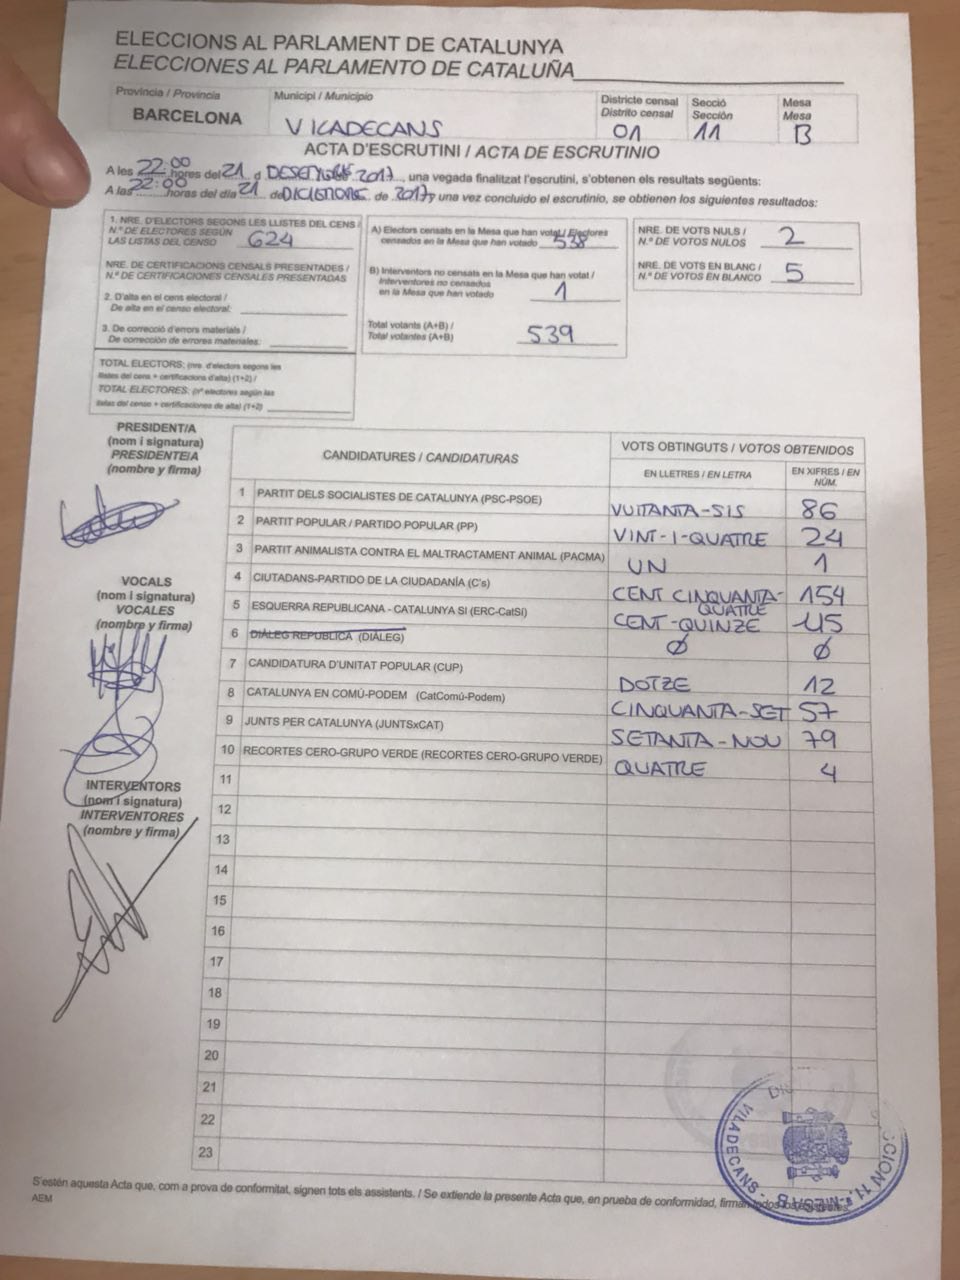 ELECCIONS AL PARLAMENT DE CATALUNYA
ELECCIONES AL PARLAMENTO DE CATALUÑA
Província / Provincia
BARCELONA
Municipi / Municipio
VILADECANS
Districte censal
Distrito censal
01
Secció
Sección
11
Mesa
Mesa
B
ACTA D'ESCRUTINI / ACTA DE ESCRUTINIO
A les 22:00 hores del 21 d 2017, una vegada finalitzat l'escrutini, s'obtenen els resultats següents:
A las 22:00 horas del día 21 de de 2017 y una vez concluido el escrutinio, se obtienen los siguientes resultados:
1. NRE. D'ELECTORS SEGONS LES LLISTES DEL CENS /
N.º DE ELECTORES SEGÚN
LAS LISTAS DEL CENSO 624
NRE. DE CERTIFICACIONS CENSALS PRESENTADES /
N.º DE CERTIFICACIONES CENSALES PRESENTADAS
2. D'alta en el cens electoral /
De alta en el censo electoral:
3. De correcció d'errors materials /
De corrección de errores materiales:
TOTAL ELECTORS: (nre. d'electors segons les
llistes del cens + certificacions d'alta) (1+2) /
TOTAL ELECTORES: (nº electores según las
listas del censo + certificaciones de alta) (1+2)
A) Electors censats en la Mesa que han votat / Electores
censados en la Mesa que han votado 538
B) Interventors no censats en la Mesa que han votat /
Interventores no censados
en la Mesa que han votado 1
Total votants (A+B) /
Total votantes (A+B) 539
NRE. DE VOTS NULS /
N.º DE VOTOS NULOS 2
NRE. DE VOTS EN BLANC /
N.º DE VOTOS EN BLANCO 5
PRESIDENT/A
(nom i signatura)
PRESIDENTE/A
(nombre y firma)
VOCALS
(nom i signatura)
VOCALES
(nombre y firma)
INTERVENTORS
(nom i signatura)
INTERVENTORES
(nombre y firma)
CANDIDATURES / CANDIDATURAS
VOTS OBTINGUTS / VOTOS OBTENIDOS
EN LLETRES / EN LETRA
EN XIFRES / EN
NÚM.
1 PARTIT DELS SOCIALISTES DE CATALUNYA (PSC-PSOE) VUITANTA-SIS 86
2 PARTIT POPULAR / PARTIDO POPULAR (PP) VINT-I-QUATRE 24
3 PARTIT ANIMALISTA CONTRA EL MALTRACTAMENT ANIMAL (PACMA) UN 1
4 CIUTADANS-PARTIDO DE LA CIUDADANÍA (C's) CENT CINQUANTA- 154
QUATRE
5 ESQUERRA REPUBLICANA - CATALUNYA SI (ERC-CatSí) CENT-QUINZE 115
6 DIÀLEG REPUBLICA (DIÀLEG) Ø Ø
7 CANDIDATURA D'UNITAT POPULAR (CUP) DOTZE 12
8 CATALUNYA EN COMÚ-PODEM (CatComú-Podem) CINQUANTA-SET 57
9 JUNTS PER CATALUNYA (JUNTSxCAT) SETANTA-NOU 79
10 RECORTES CERO-GRUPO VERDE (RECORTES CERO-GRUPO VERDE) QUATRE 4
11
12
13
14
15
16
17
18
19
20
21
22
23
VILADECANS - SECCION 11.ª - MESA B
S'estén aquesta Acta que, com a prova de conformitat, signen tots els assistents. / Se extiende la presente Acta que, en prueba de conformidad, firman todos los asistentes.
AEM